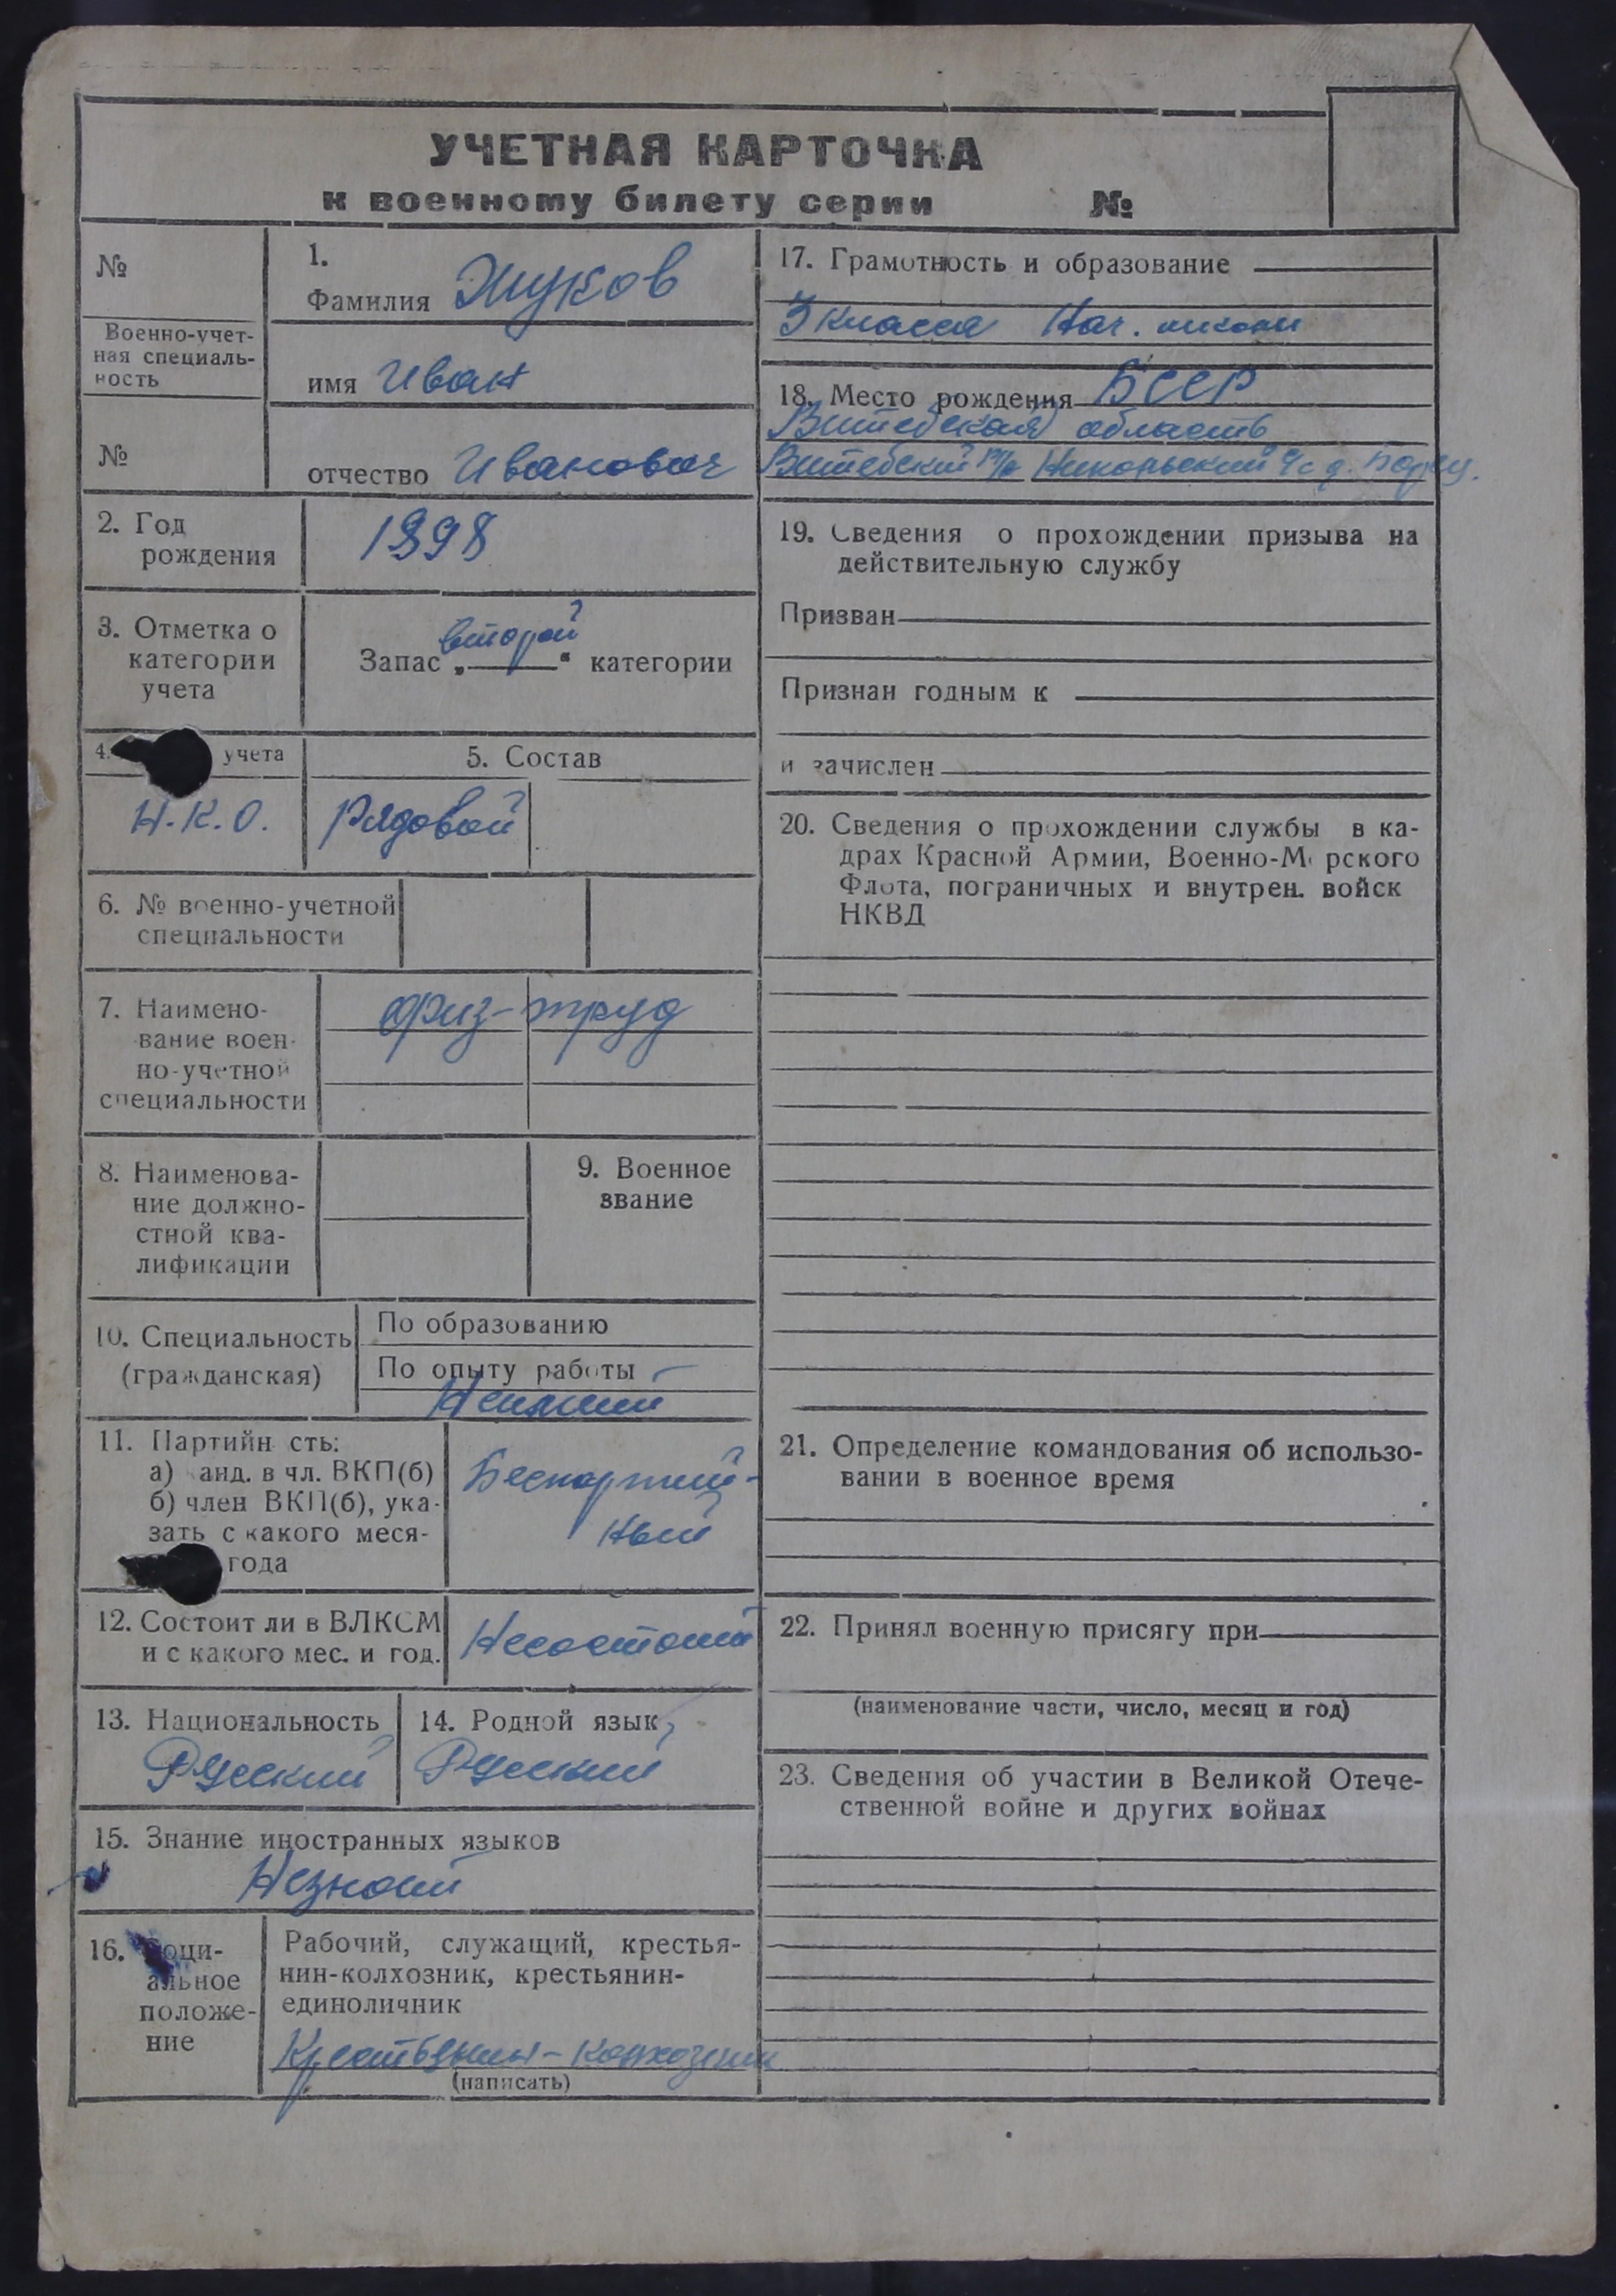 УЧЕТНАЯ КАРТОЧКА
к военному билету серии №
№
Военно-учет-
ная специаль-
ность
№
1.
Фамилия Жуков
имя Иван
отчество Иванович
2. Год
рождения
1898
3. Отметка о
категории
учета
Запас „второй“ категории
4. учета
Н.К.О.
5. Состав
Рядовой
6. № военно-учетной
специальности
7. Наимено-
вание воен-
но-учетной
специальности
физ-труд
8. Наименова-
ние должно-
стной ква-
лификации
9. Военное
звание
10. Специальность
(гражданская)
По образованию
По опыту работы
Неимеит
11. Партийн сть:
а) анд. в чл. ВКП(б)
б) член ВКП(б), ука-
зать с какого меся-
года
Беспартий-
ный
12. Состоит ли в ВЛКСМ
и с какого мес. и год.
Несостоит
13. Национальность
Русский
14. Родной язык
Русский
15. Знание иностранных языков
Незнаит
16. Соци-
альное
положе-
ние
Рабочий, служащий, крестья-
нин-колхозник, крестьянин-
единоличник
Крестьянин-колхозник
(написать)
17. Грамотность и образование
3 класса Нач. школы
18. Место рождения БССР
Витебская область
Витебский р/н Никольский с/с д.
19. Сведения о прохождении призыва на
действительную службу
Призван
Признан годным к
и зачислен
20. Сведения о прохождении службы в ка-
драх Красной Армии, Военно-М рского
Флота, пограничных и внутрен. войск
НКВД
21. Определение командования об использо-
вании в военное время
22. Принял военную присягу при
(наименование части, число, месяц и год)
23. Сведения об участии в Великой Отече-
ственной войне и других войнах